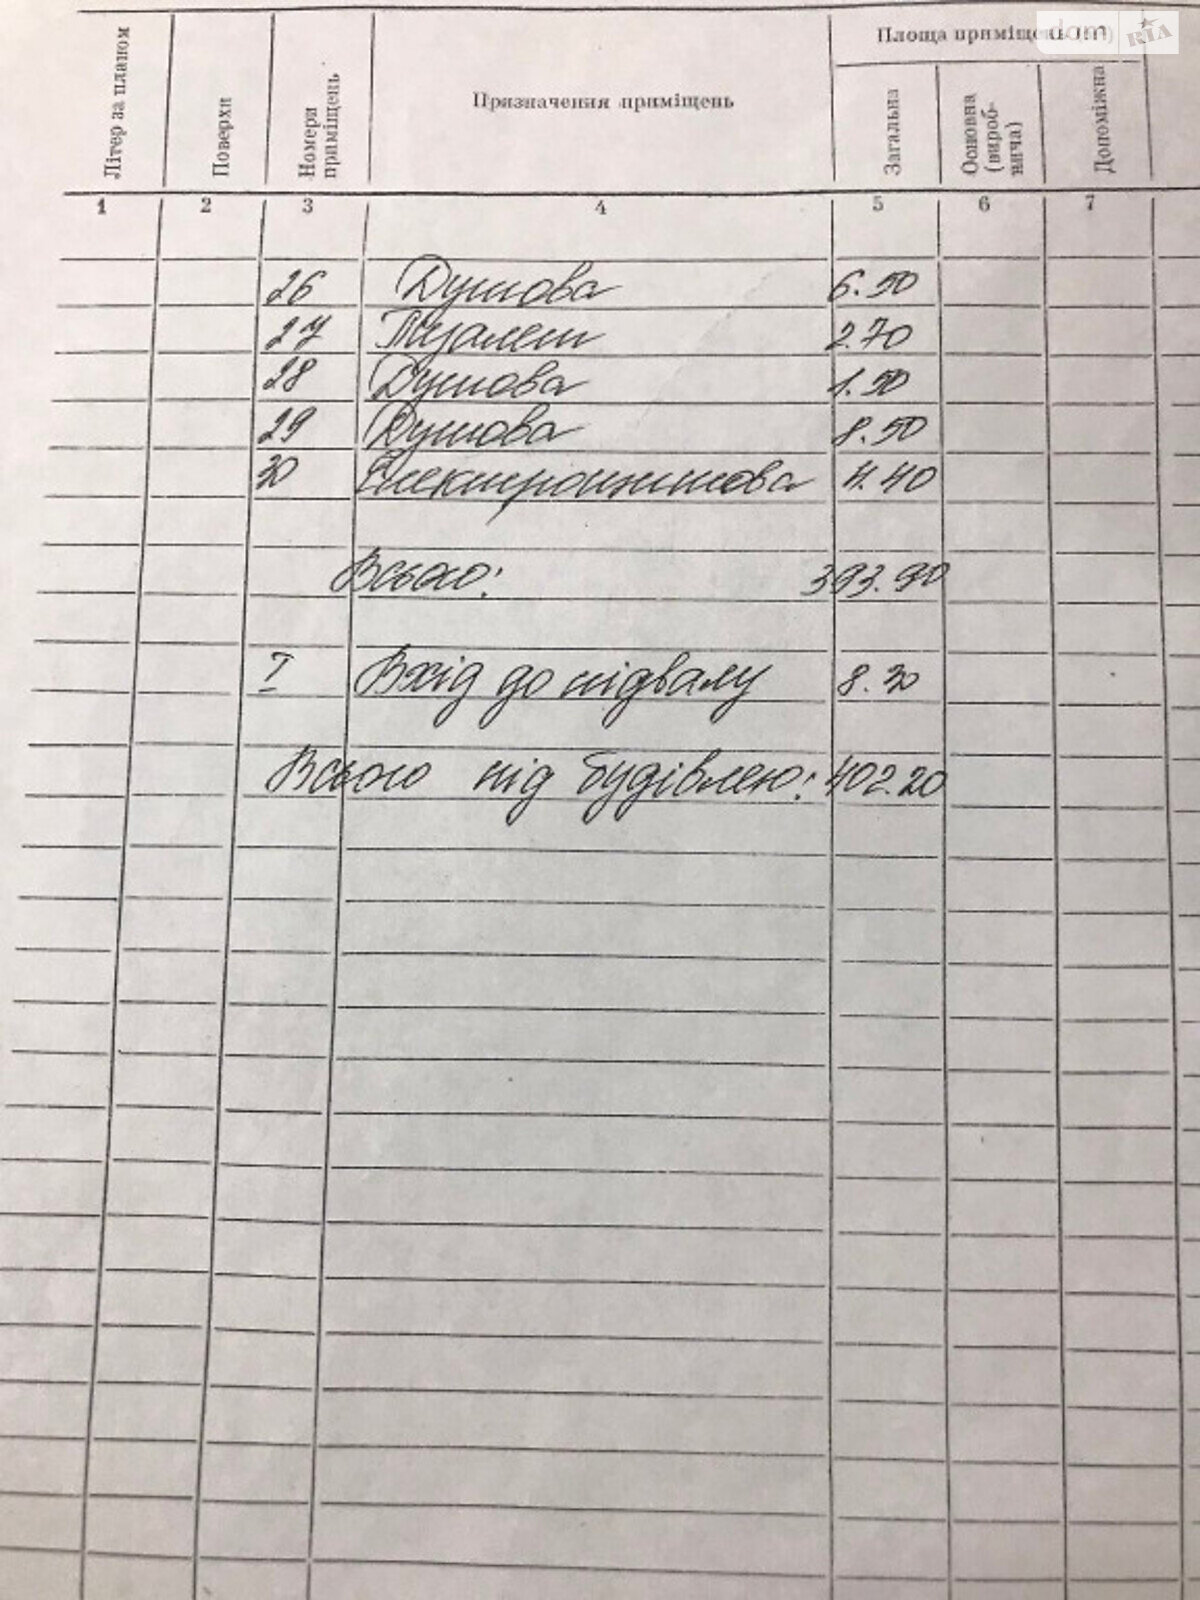 Літер за планом
Поверхи
Номери приміщень
Призначення приміщень
Площа приміщень (м²)
Загальна
Основна (вироб-нича)
Допоміжна
dom RIA
1 2 3 4 5 6 7
26 Душова 6.50
27 Туалет 2.70
28 Душова 1.50
29 Душова 8.50
30 Електрощитова 4.40
Всього: 393.90
I Вхід до підвалу 8.30
Всього під будівлею: 402.20